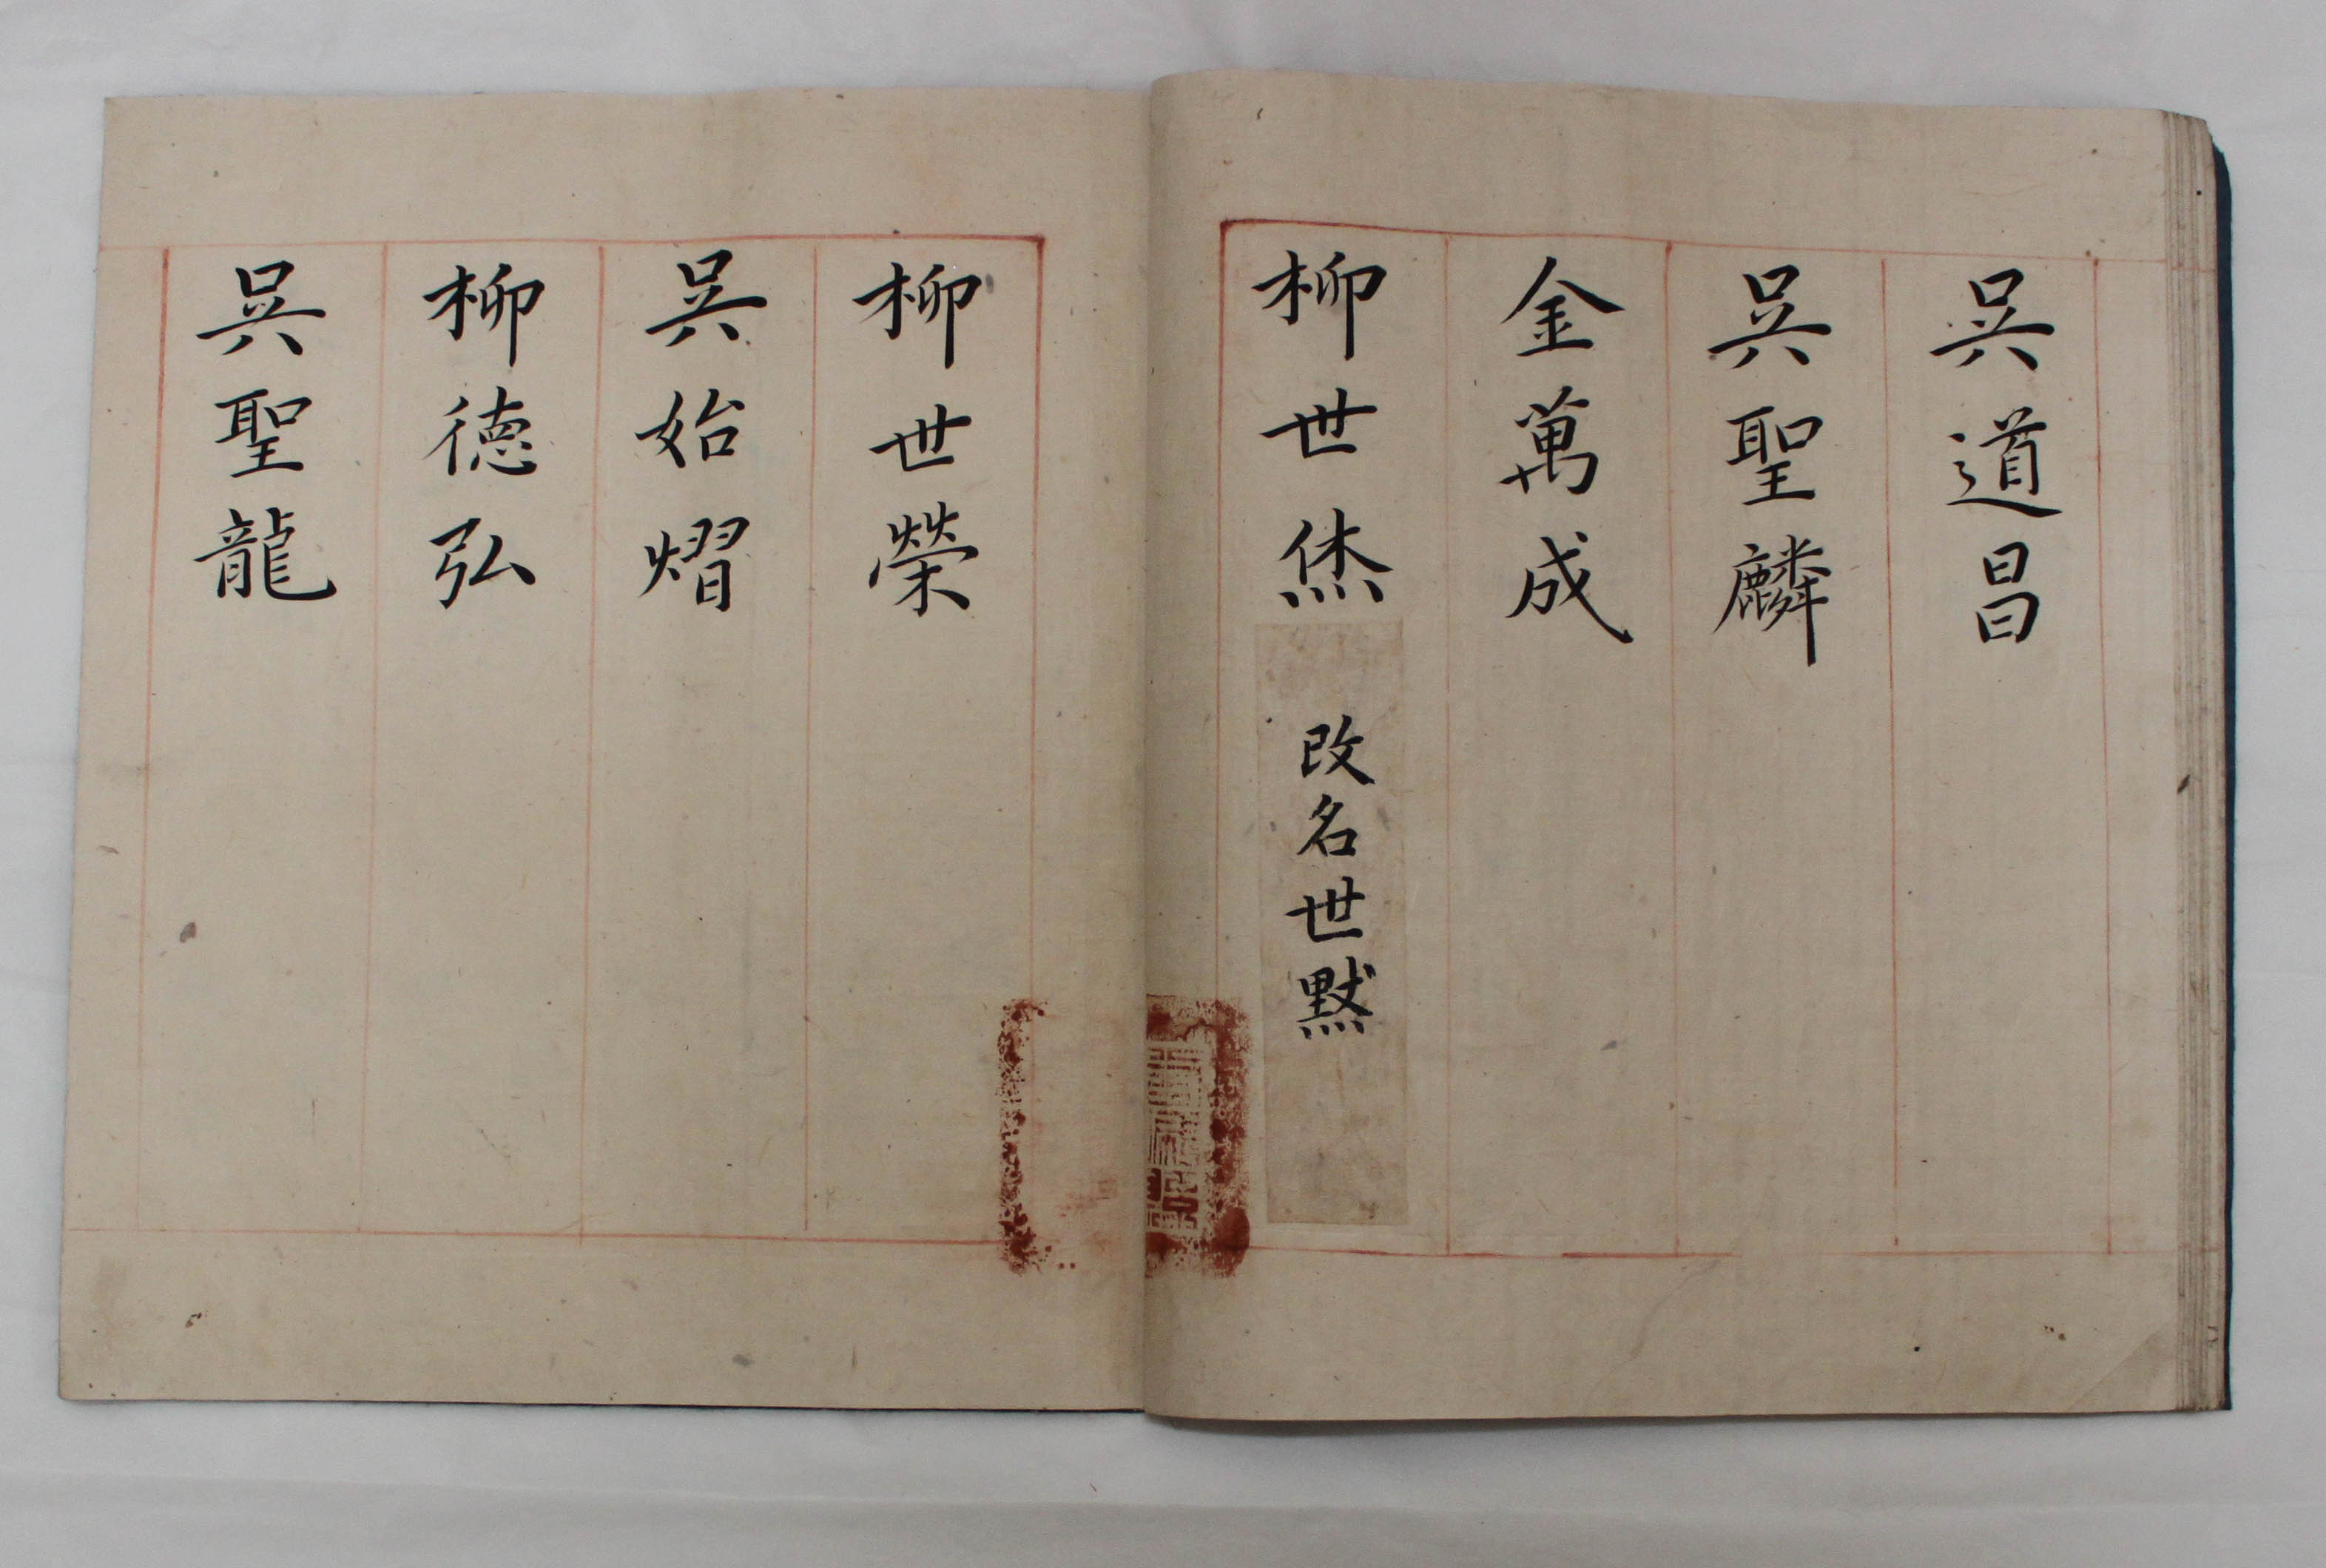 吳道昌
吳聖麟
金萬成
柳世烋 改名世默
柳世榮
吳始熠
柳徳弘
吳聖龍